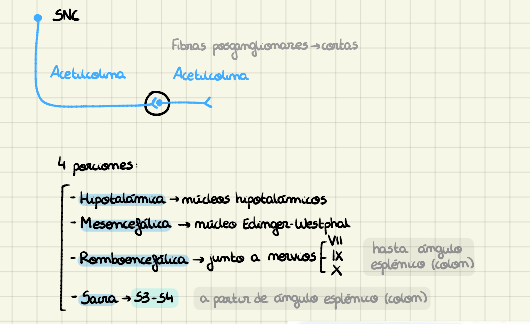 SNC
Fibras posganglionares → cortas
Acetilcolina Acetilcolina
4 porciones:
- Hipotalámica → núcleos hipotalámicos
- Mesencefálica → núcleo Edinger-Westphal
- Romboencefálica → junto a nervios VII
IX
X
hasta ángulo
esplénico (colon)
- Sacra → S3-S4 a partir de ángulo esplénico (colon)